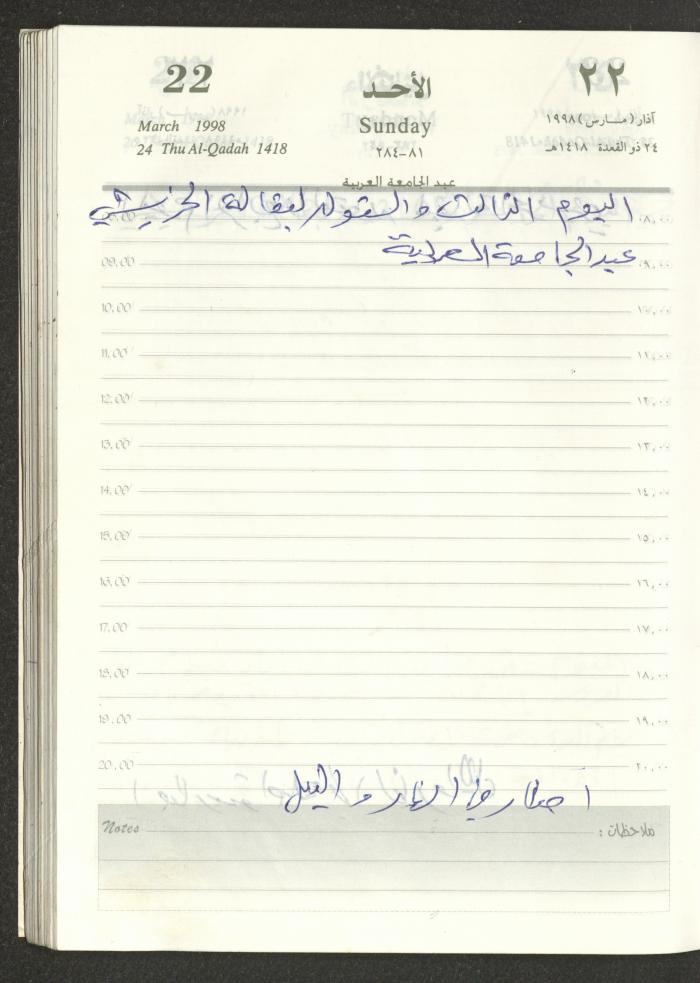 22 الأحد ٢٢
March 1998 Sunday آذار (مارس) ١٩٩٨
24 Thu Al-Qadah 1418 ٨١-٢٨٤ ٢٤ ذو القعدة ١٤١٨هـ
عيد الجامعة العربية
اليوم الثالث و لبقالة
٠٨,٠٠
عيد الجامعة العربية
09,00 ٠٩,٠٠
10,00 ١٠,٠٠
11,00 ١١,٠٠
12,00 ١٢,٠٠
13,00 ١٣,٠٠
14,00 ١٤,٠٠
15,00 ١٥,٠٠
16,00 ١٦,٠٠
17,00 ١٧,٠٠
18,00 ١٨,٠٠
19,00 ١٩,٠٠
20,00 ٢٠,٠٠
امطار في النهار و الليل
Notes ملاحظات :